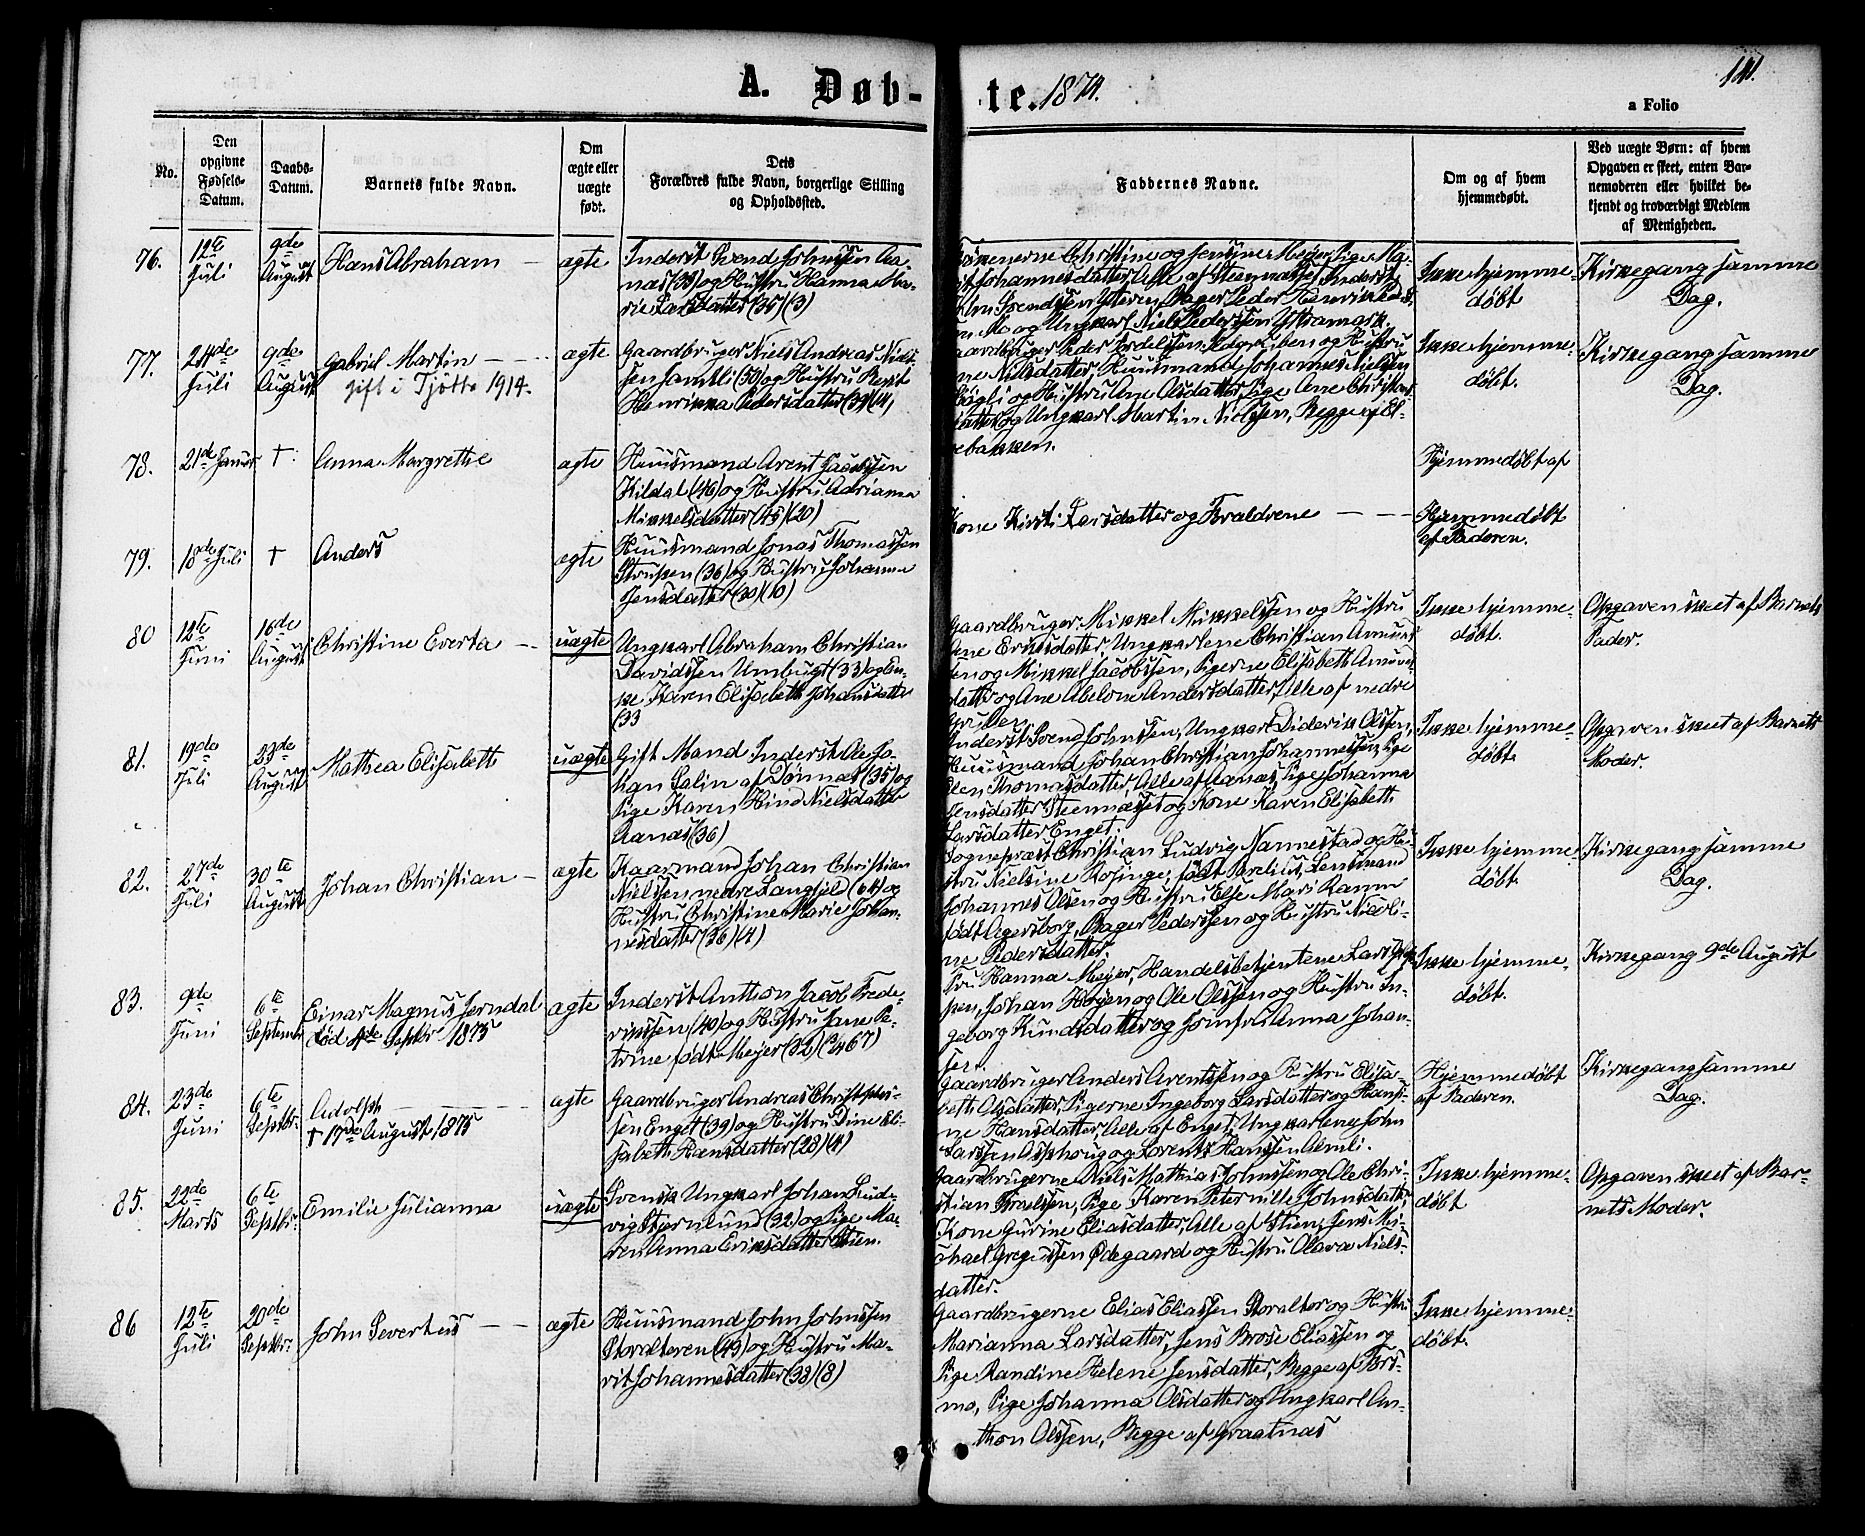 A. Døb-
te. 1874.
141.
a Folio
No.
Den opgivne Fødsels-Datum.
Daabs-Datum.
Barnets fulde Navn.
Om ægte eller uægte født.
Dets Forældres fulde Navn, borgerlige Stilling og Opholdssted.
Faddernes Navne.
Om og af hvem hjemmedøbt.
Ved uægte Børn: af hvem Opgaven er skeet, enten Barnemoderen eller hvilket bekjendt og troværdigt Medlem af Menigheden.
76.
12te Juli
9de August
Hans Abraham
ægte
Inderst Svend Johnssen Aa-
næs (38) og Hustru Hanna Ma-
rie Larsdatter (35) (3)
Johannesdatter, Alle af Steennæsset, Inderst
Ikke hjemme-
døbt
Kirkegang samme
Dag.
77.
24de Juli
9de August
Gabriel Martin
gift i Tjøtta 1914.
ægte
Gaardbruger Niels Andreas Niels-
sen Jamtli (50) og Hustru Berit
Henrikka Pedersdatter (39) (4)
ne Nielsdatter, Huusmand Johannes Nielssen
og Hustru Ane Olsdatter, Pige Ane Christians-
datter og Ungkarl Martin Nielssen, Begge af El-
vebakken.
Ikke hjemme-
døbt.
Kirkegang samme
Dag.
78.
21de Januar
†
Anna Margrethe
ægte
Huusmand Arent Jacobssen
Kildal (46) og Hustru Adriana
Mikkelsdatter (45) (20)
Hjemmedøbt af
79.
18de Juli
†
Anders
ægte
Huusmand Jonas Thomassen
Strupen (36) og Hustru Johanna
Jensdatter (30) (10)
Kone Kirsti Larsdatter og Forældrene
Hjemmedøbt
af Faderen.
80
12te Juni
16de August
Christine Everta
uægte
Ungkarl Abraham Christian
Davidssen Umbugt (33) og En-
ke Karen Elisabeth Johansdatter
(33
Gaardbruger Mikkel Mikkelssen og Hustru
Ane Eriksdatter, Ungkarlene Christian Amund-
sen og Mikkel Jacobssen, Pigerne Elisabeth Amunds-
datter og Ane Abelone Andersdatter, Alle af nedre
Ikke hjemme-
døbt.
Opgaven skeet af Barnets
Fader.
81.
19de Juli
23de August
Mathea Elisabeth
uægte
Gift Mand Inderst Ole Jo-
han Salin af Dønnæs (35) og
Pige Karen Hind Nielsdatter
Aanæs (36)
Inderst Svend Johnssen, Ungkarl Diderik Olssen,
Huusmand Johan Christian Johannessen, Pige
Elen Thomasdatter, Alle af Aanæs, Pige Johanna
Jensdatter Steennæsset og Kone Karen Elisabeth
Larsdatter Enget.
Ikke hjemme-
døbt.
Opgaven skeet af Barnets
Moder.
82.
27de Juli
30te August
Johan Christian
ægte
Kaarmand Johan Christian
Nielsen nedre Langfjeld (64) og
Hustru Christine Marie Johan-
nesdatter (36) (4)
Sognepræst Christian Ludvig Nannestad og Hu-
stru Nielsine Kosinge, født Parelius, Lensmand
Johannes Olsen og Hustru Else Mari Ramm
født Agersborg, Bager Pederssen og Hustru Nicoli-
ne Pedersdatter.
Ikke hjemme-
døbt.
Kirkegang samme
Dag.
83.
9de Juni
6te September
Einar Magnus Jerndal
død 4de Septbr 1875
ægte
Inderst Anthon Jacob Frede-
rikssen (40) og Hustru Jane Pe-
trine født Meyer (32)
Fru Hanna Meyer, Handelsbetjentene Lars
Johan Høyen og Ole Olssen og Hustru In-
geborg Knudsdatter og Jomfru Anna Johan-
sen.
Ikke hjemme-
døbt.
Kirkegang 9de August
84.
23de Juni
6te Septbr.
Adolph
† 17de August 1875
ægte
Gaardbruger Andreas Christophers-
sen Enget (39) og Hustru Dine Eli-
sabeth Hansdatter (28) (4)
Gaardbruger Anders Arentssen og Hustru Elisa-
beth Olsdatter, Pigerne Ingeborg Larsdatter og Hansi-
ne Hansdatter, Alle af Enget, Ungkarlene John
Larssen Asphoug og Lorents Hanssen Aemli.
Hjemmedøbt
af Faderen.
Kirkegang samme
Dag.
85.
22de Marts
6te Septbr.
Emilie Julianna
uægte
Svensk Ungkarl Johan Lud-
vig Stjernlund (32) og Pige Ma-
ren Anna Eriksdatter Stien.
Gaardbrugerne Niels Mathias Johnssen og Ole Chri-
stian Israelsen, Pige Karen Peternille Johnsdatter,
Kone Gurine Eliasdatter, Alle af Stien, Jens Mi-
chael Gregussen Ødegaard og Hustru Olava Niels-
datter.
Ikke hjemme-
døbt
Opgaven skeet af Bar-
nets Moder.
86
12te Juli
20de Septbr.
John Severtus
ægte
Huusmand John Johnssen
Storalteren (43) og Hustru Ma-
rit Johannesdatter (38) (8)
Gaardbrugerne Elias Eliassen Storalter og Hustru
Marianna Larsdatter, Jens Brose Eliassen og
Pige Randine Helene Jensdatter, Begge af Fors-
mo, Pige Johanna Olsdatter og Ungkarl An-
thon Olssen, Begge af Graatnæs
Ikke hjemme-
døbt.